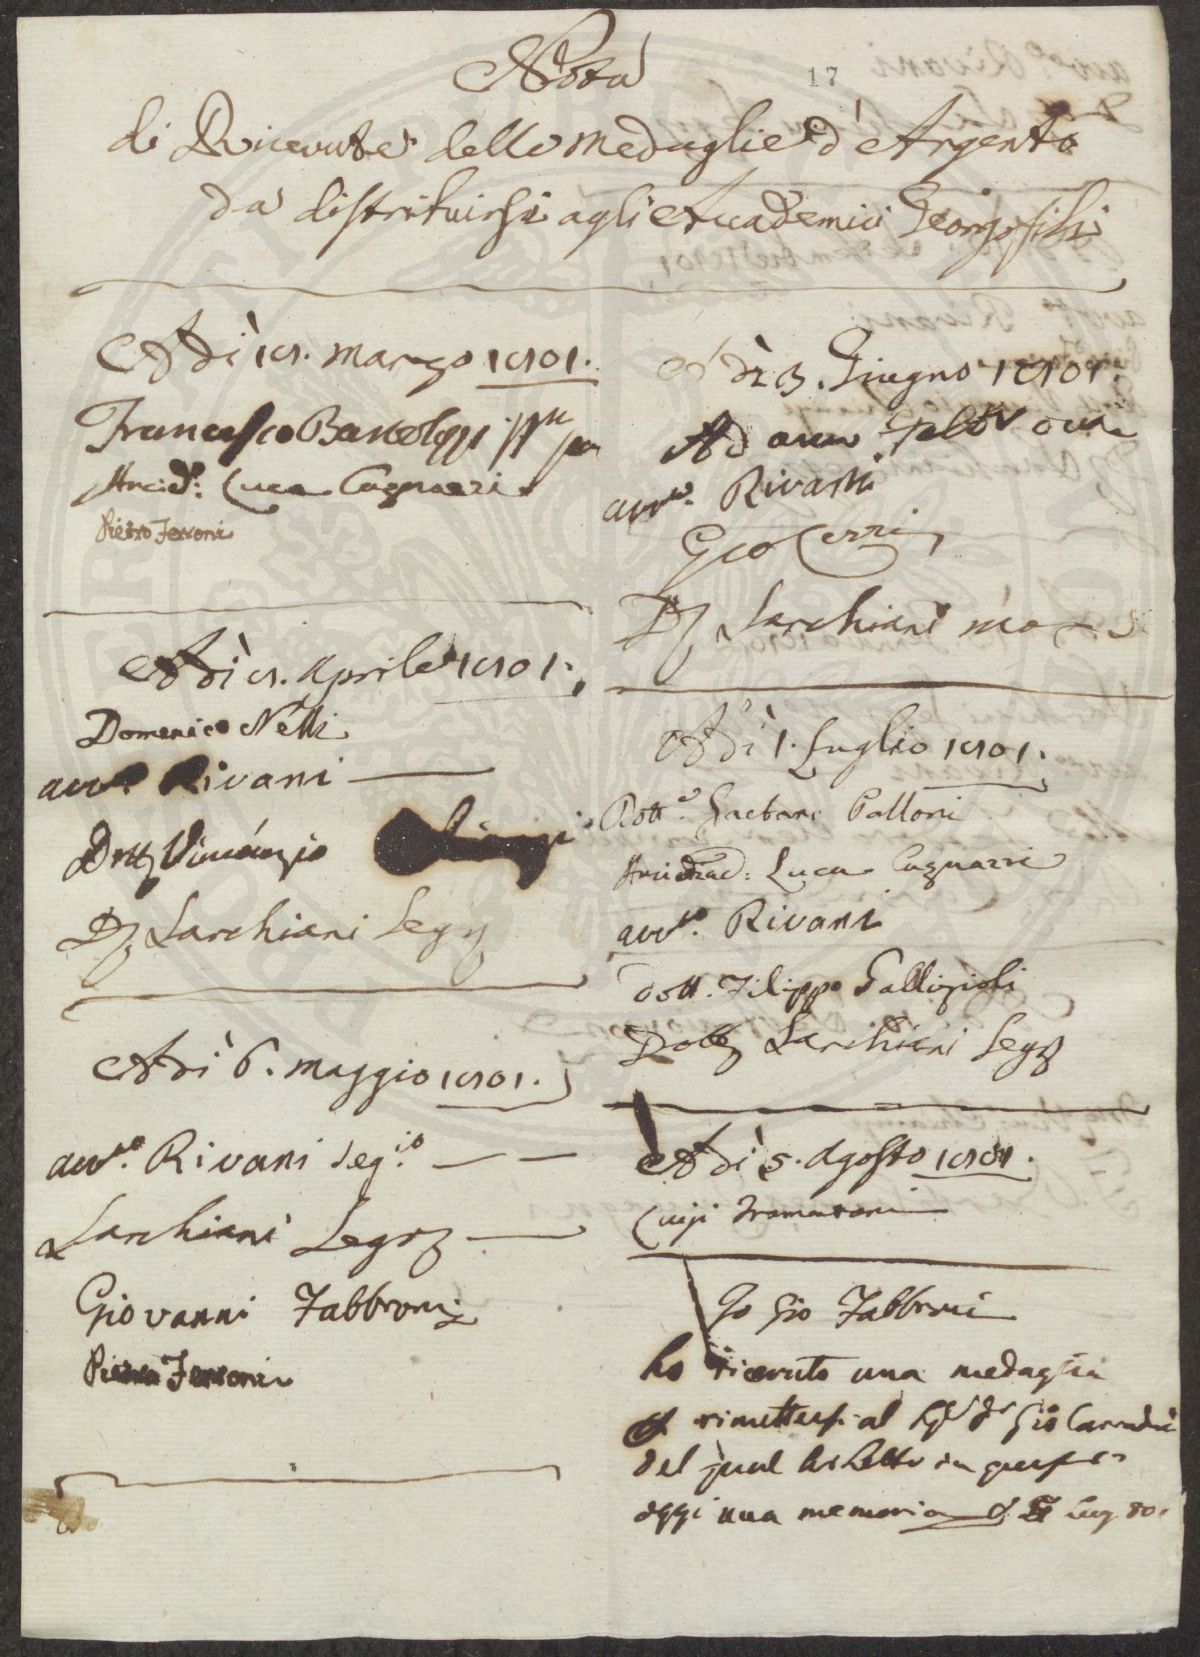 Nota
17
di Ricevute delle Medaglie d'Argento
da distribuirsi agli Accademici Georgofili
Adì 18. Marzo 1801.
Francesco Bartolozzi
Arcid: Luca Cagnazzi
Pietro Ferroni
Adì 8. Aprile 1801.
Domenico Nelli
avvo. Rivani
Dott Vincenzio Chiarugi
D Sarchiani Segr
Adì 6. Maggio 1801.
avvo. Rivani Segio
Sarchiani Segr
Giovanni Fabbroni
Pietro Ferroni
Adì 3. Giugno 1801.
avvo. Rivani
Gio
D Sarchiani
Adì 1. Luglio 1801.
Dott.e Gaetano Palloni
Arcidiac: Luca Cagnazzi
avvo. Rivani
Dott. Filippo Gallizioli
Dott Sarchiani Segr
Adì 5. Agosto 1801.
Luigi Tramontani
Io Gio Fabbroni
ho ricevuto una medaglia
rimettersi al Gio Carradori
del qual ho letto in
oggi una memoria